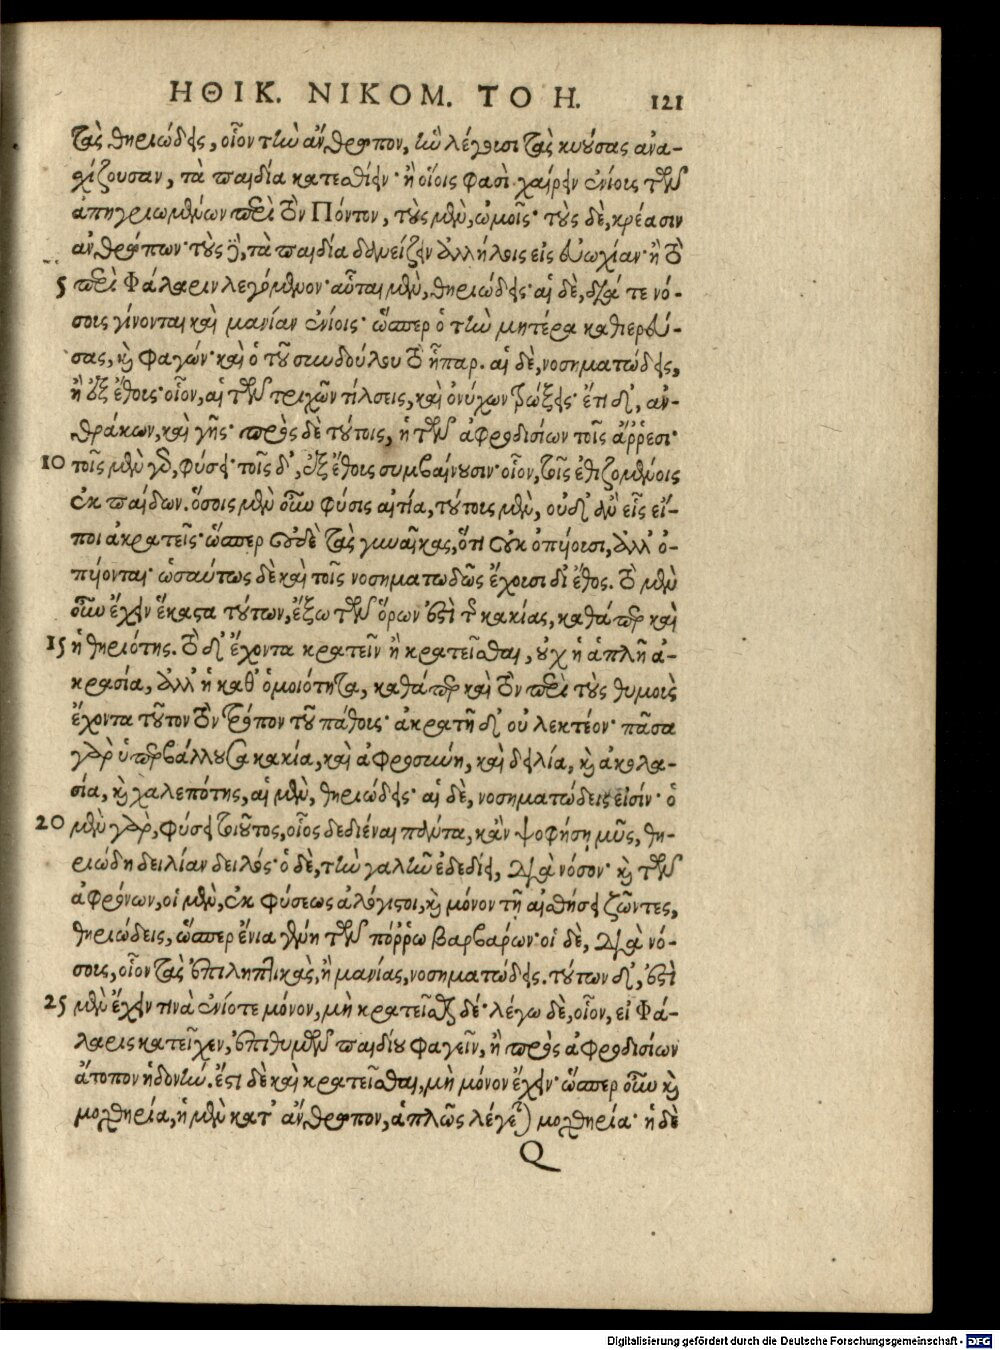 ΗΘΙΚ. ΝΙΚΟΜ. ΤΟ Η. 121
τὰς θηριώδεις, οἷον τὴν ἄνθρωπον, ἣν λέγουσι τὰς κυούσας ἀνα-
σχίζουσαν, τὰ παιδία κατεσθίειν· ἢ οἵοις φασὶ χαίρειν ἐνίοις τῶν
ἀπηγριωμένων περὶ τὸν Πόντον, τοὺς μὲν, ὠμοῖς· τοὺς δὲ, κρέασιν
ἀνθρώπων· τοὺς δὲ, τὰ παιδία δανείζειν ἀλλήλοις εἰς εὐωχίαν· ἢ τὸ
5 περὶ Φάλαριν λεγόμενον· αὗται μὲν, θηριώδεις· αἱ δὲ, διά τε νό-
σους γίνονται καὶ μανίαν ἐνίοις· ὥσπερ ὁ τὴν μητέρα καθιερεύ-
σας, καὶ φαγών· καὶ ὁ τοῦ συνδούλου τὸ ἧπαρ. αἱ δὲ, νοσηματώδεις,
ἢ ἐξ ἔθους· οἷον, αἱ τῶν τριχῶν τίλσεις, καὶ ὀνύχων τρώξεις· ἔτι δ', ἀν-
θράκων, καὶ γῆς· πρὸς δὲ τούτοις, ἡ τῶν ἀφροδισίων τοῖς ἄῤῥεσι·
10 τοῖς μὲν γὰρ, φύσει· τοῖς δ', ἐξ ἔθους συμβαίνουσιν· οἷον, τοῖς ἐθιζομένοις
ἐκ παίδων. ὅσοις μὲν οὖν φύσις αἰτία, τούτους μὲν, οὐδ' ἂν εἷς εἴ-
ποι ἀκρατεῖς· ὥσπερ οὐδὲ τὰς γυναῖκας, ὅτι οὐκ ὀπύουσι, ἀλλ' ὀ-
πύονται· ὡσαύτως δὲ καὶ τοῖς νοσηματωδῶς ἔχουσι δι' ἔθος. τὸ μὲν
οὖν ἔχειν ἕκαστα τούτων, ἔξω τῶν ὅρων ἐστὶ τῆς κακίας, καθάπερ καὶ
15 ἡ θηριότης. τὸ δ' ἔχοντα κρατεῖν ἢ κρατεῖσθαι, οὐχ ἡ ἁπλῆ ἀ-
κρασία, ἀλλ' ἡ καθ' ὁμοιότητα, καθάπερ καὶ τὸν περὶ τοὺς θυμοὺς
ἔχοντα τοῦτον τὸν τρόπον τοῦ πάθους· ἀκρατῆ δ' οὐ λεκτέον· πᾶσα
γὰρ ὑπερβάλλουσα κακία, καὶ ἀφροσύνη, καὶ δειλία, καὶ ἀκολα-
σία, καὶ χαλεπότης, αἱ μὲν, θηριώδεις· αἱ δὲ, νοσηματώδεις εἰσίν· ὁ
20 μὲν γὰρ, φύσει τοιοῦτος, οἷος δεδιέναι πάντα, κἂν ψοφήσῃ μῦς, θη-
ριώδη δειλίαν δειλός· ὁ δὲ, τὴν γαλῆν ἐδεδίει, διὰ νόσον· καὶ τῶν
ἀφρόνων, οἱ μὲν, ἐκ φύσεως ἀλόγιστοι, καὶ μόνον τῇ αἰσθήσει ζῶντες,
θηριώδεις, ὥσπερ ἔνια γένη τῶν πόῤῥω βαρβάρων· οἱ δὲ, διὰ νό-
σους, οἷον τὰς ἐπιληπτικὰς, ἢ μανίας, νοσηματώδεις. τούτων δ', ἐστὶ
25 μὲν ἔχειν τινὰ ἐνίοτε μόνον, μὴ κρατεῖσθαι δέ· λέγω δὲ, οἷον, εἰ Φά-
λαρις κατεῖχεν, ἐπιθυμῶν παιδίου φαγεῖν, ἢ πρὸς ἀφροδισίων
ἄτοπον ἡδονήν. ἔστι δὲ καὶ κρατεῖσθαι, μὴ μόνον ἔχειν· ὥσπερ οὖν καὶ
μοχθηρία, ἡ μὲν κατ' ἄνθρωπον, ἁπλῶς λέγεται μοχθηρία· ἡ δὲ
Q
Digitalisierung gefördert durch die Deutsche Forschungsgemeinschaft - DFG